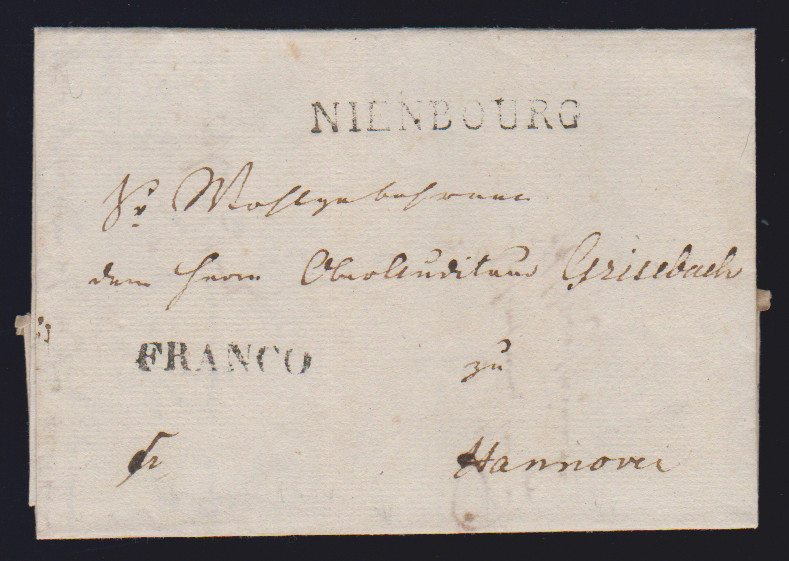 NIENBOURG
Sr Wohlgebohren
dem Herrn OberAuditeur Grisebach
FRANCO
zu
fr
Hannover